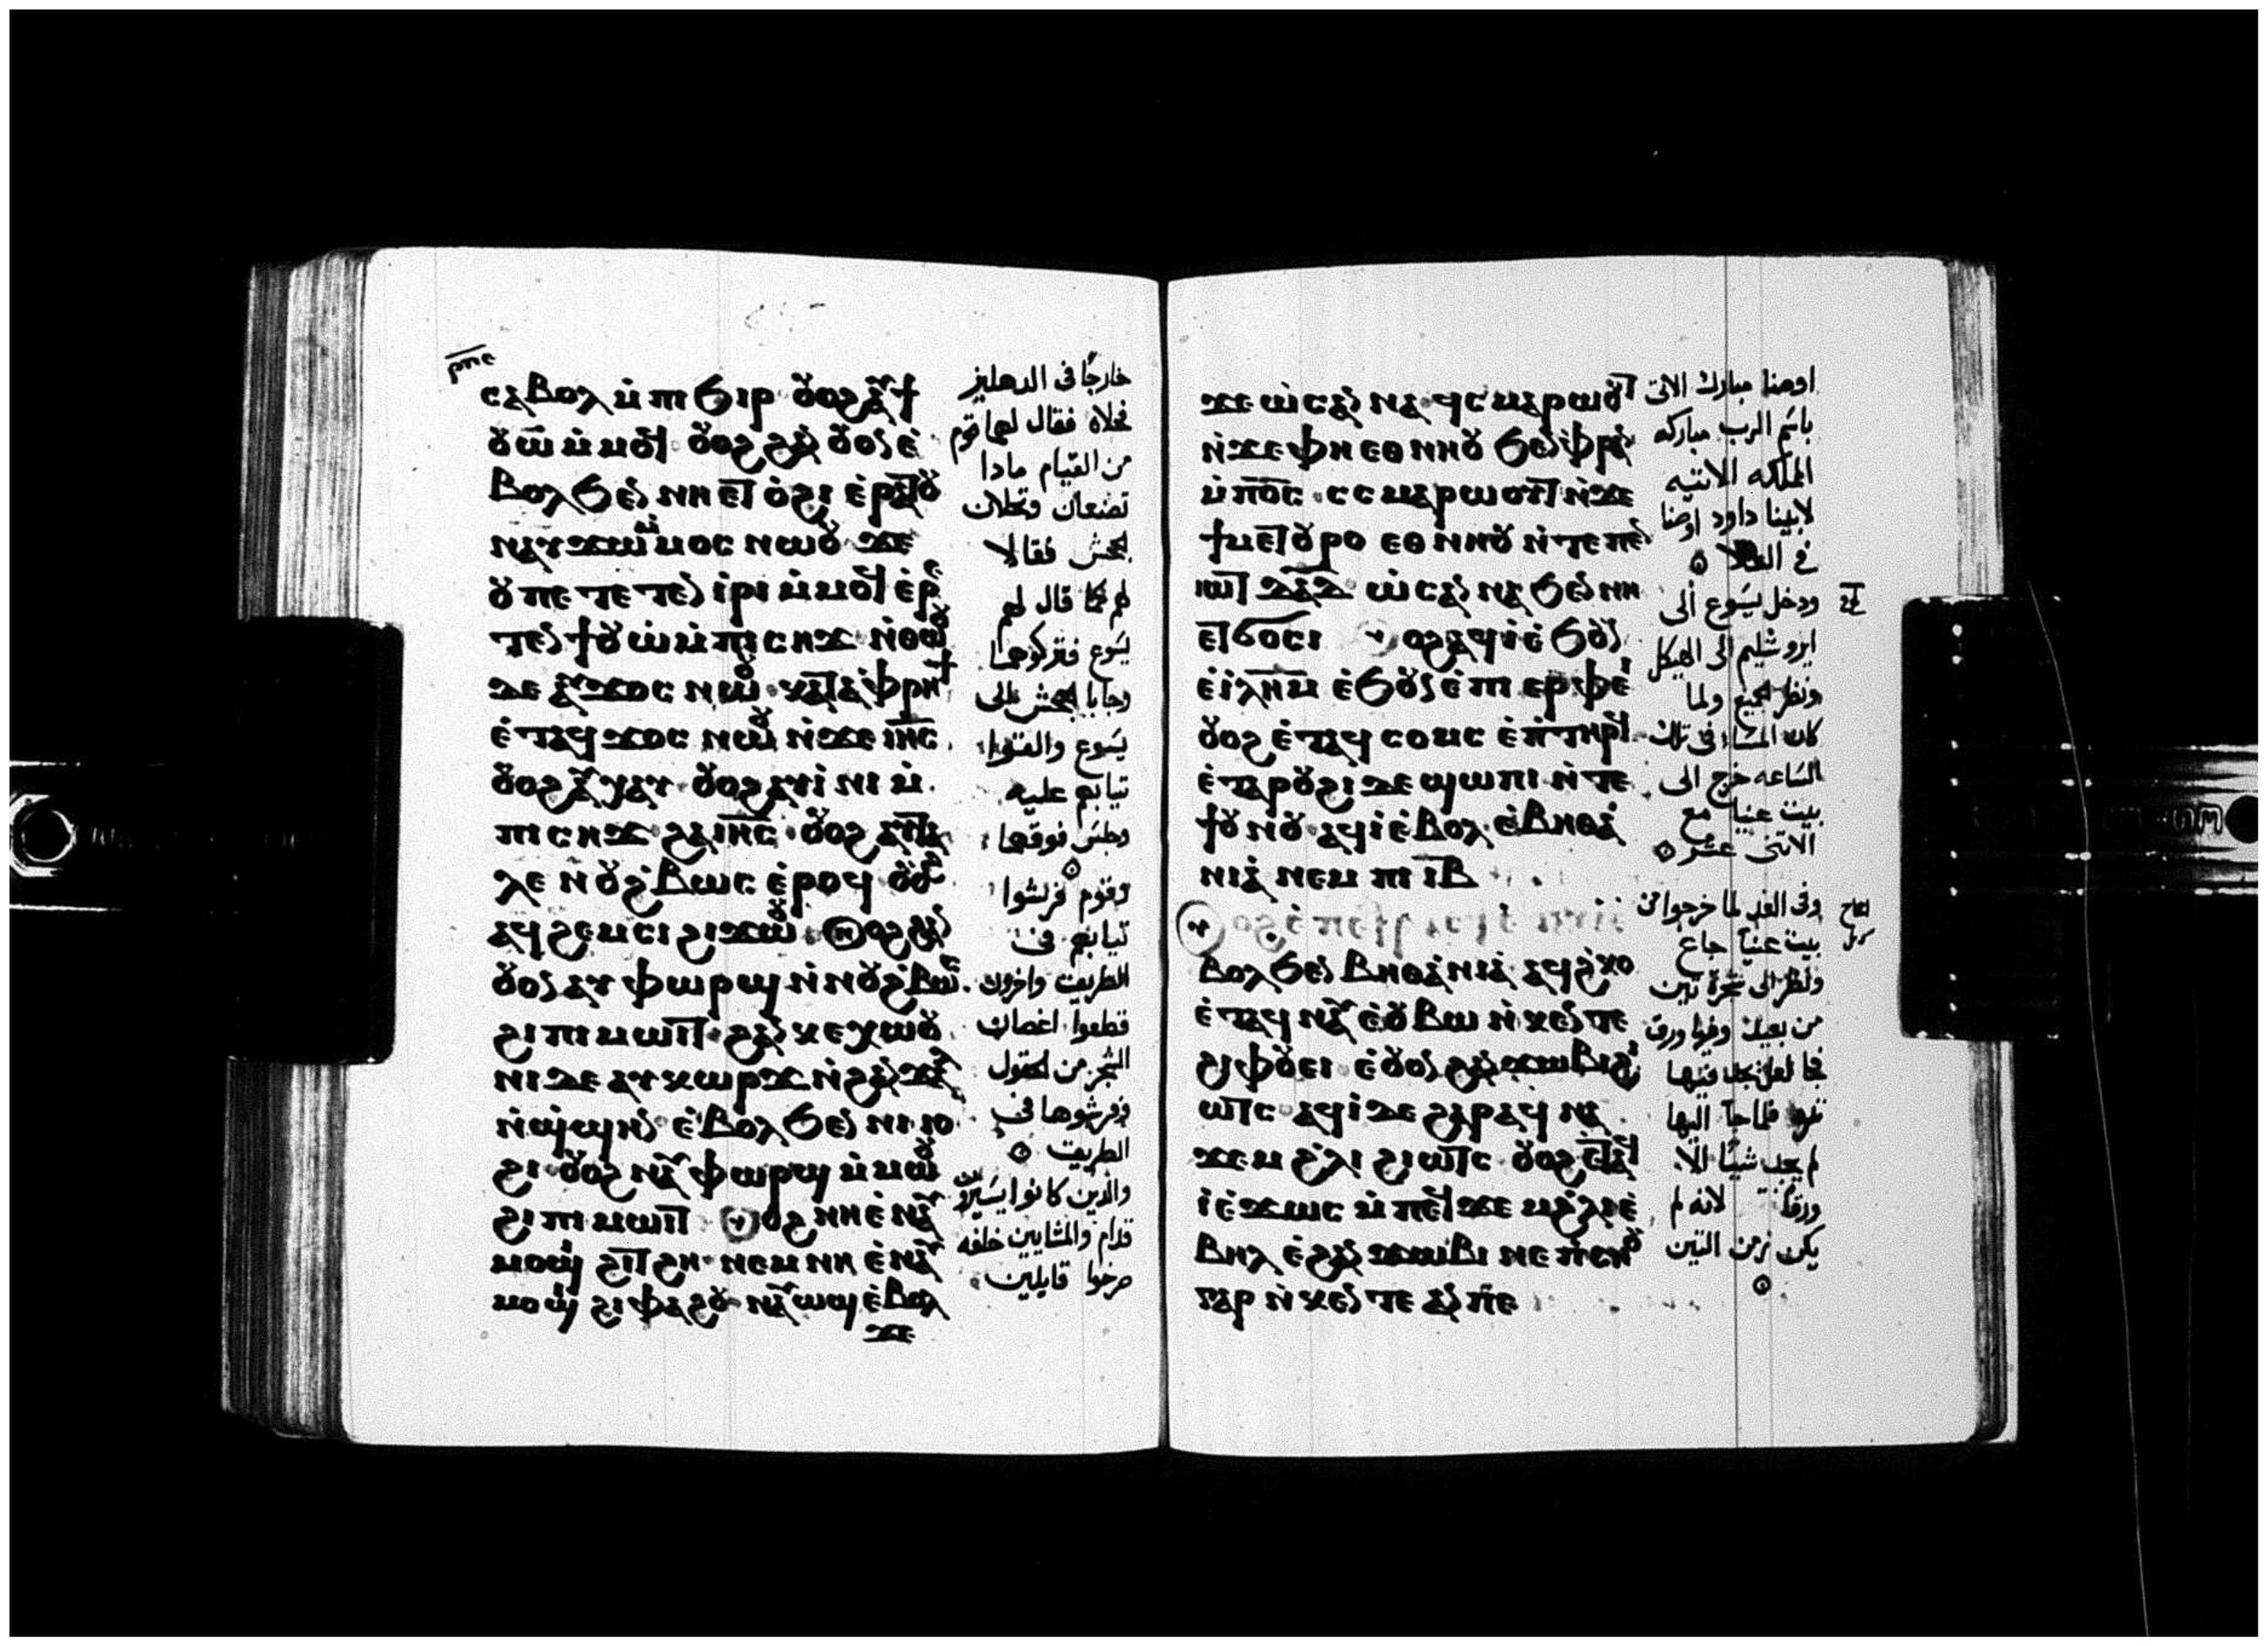 ⲣⲡⲉ
ⲥⲁⲃⲟⲗ ⲙ̀ⲡⲓϧⲓⲣ ⲟⲩⲟϩ
ⲃⲟⲗ ϧⲉⲛ ⲛⲏ ⲉⲧ ⲟ̀ϩⲓ ⲉ̀ⲣⲁⲧⲟⲩ
ⲛⲁⲩϫⲱ ⲙ̀ⲙⲟⲥ ⲛⲱⲟⲩ ϫⲉ
ⲟⲩ ⲡⲉ ⲧⲉⲧⲉⲛ ⲓ̀ⲣⲓ ⲙ̀ⲙⲟϥ ⲉ̀ⲣⲉ
ⲧⲉⲛ ϯⲟⲩⲱ ⲙ̀ⲡⲓⲥⲏϫ ⲛ̀ⲑⲱⲟⲩ
ⲇⲉ ⲁⲩϫⲟⲥ ⲛⲱⲟⲩ ⲕⲁⲧⲁ ⲫⲣⲏϯ
ⲉ̀ⲧⲁϥϫⲟⲥ ⲛⲱⲟⲩ ⲛ̀ϫⲉ ⲓⲏ̅ⲥ̅
ⲟⲩⲟϩ ⲁⲩⲭⲁⲩ ⲟⲩⲟϩ ⲁⲩⲓ̀ⲛⲓ ⲙ̀
ⲡⲓⲥⲏϫ ϩⲁ ⲓⲏ̅ⲥ̅ ⲟⲩⲟϩ ⲁⲩⲧⲁ
ⲗⲉ ⲛⲟⲩϩ̀ⲃⲱⲥ ⲉ̀ⲣⲟϥ ⲟⲩⲟϩ
ⲁϥϩⲉⲙⲥⲓ ϩⲓϫⲱⲟⲩ ⲟϩ ϩⲁⲛ
ⲟⲩⲟⲛ ⲁⲩⲫⲱⲣϣ ⲛ̀ⲛⲟⲩϩ̀ⲃⲱⲥ
ϩⲓ ⲡⲓⲙⲱⲓⲧ ϩⲁⲛⲕⲉⲭⲱⲟⲩ
ⲛⲓ ⲇⲉ ⲁⲩⲕⲱⲣϫ ⲛ̀ϩⲁⲛϫⲁⲗ
ⲛ̀ϣ̀ϣⲏⲛ ⲉ̀ⲃⲟⲗ ϧⲉⲛ ⲛⲓⲓⲟ
ϩⲓ ⲟⲩⲟϩ ⲛⲁⲩⲫⲱⲣϣ ⲙ̀ⲙⲱⲟⲩ
ϩⲓ ⲡⲓⲙⲱⲓⲧ ⲟϩ ⲛⲏ ⲉ̀ⲛⲁⲩ
ⲙⲟϣⲓ ϩⲓⲧϩⲏ ⲛⲉⲙ ⲛⲏ ⲉ̀ⲛⲁⲩ
ⲙⲟϣⲓ ϩⲓⲫⲁϩⲟⲩ ⲛⲁⲩⲱϣ ⲉ̀ⲃⲟⲗ
ϫⲉ
خارجًا فى الدهليز
فحلاه فقال لهما قوم
من القيام مادا
تصنعان وتحلان
الجحش فقالا
لهم كما قال لهم
يسوع فتركوهما
وجابا الجحش الى
يسوع والقوا
تيابهم عليه
وجلس فوقهما
وقوم فرشوا
تيابهم فى
الطريق واخرون
قطعوا اغصان
الشجر من الحقول
وفرشوها فى
الطريق
والدين كانوا يسيرون
قدام والمشايين خلفه
صرخوا قايلين
ϫⲉ ⲱ̀ⲥⲁⲛⲛⲁ ϥ̀ⲥⲙⲁⲣⲱⲟⲩⲧ
ⲛ̀ϫⲉ ⲫⲏ ⲉⲑⲛⲏⲟⲩ ϧⲉⲛ ⲫⲣⲁⲛ
ⲙ̀ⲡⲟ̅ⲥ̅ ⲥ̀ⲥⲙⲁⲣⲱⲟⲩⲧ ⲛ̀ϫⲉ
ϯⲙⲉⲧⲟⲩⲣⲟ ⲉⲑⲛⲏⲟⲩ ⲛ̀ⲧⲉ ⲡⲉⲛ
ⲓⲱⲧ ⲇⲁⲇ ⲱ̀ⲥⲁⲛⲛⲁ ϧⲉⲛ ⲛⲏ
ⲉⲧϭⲟⲥⲓ ⲟϩ ⲁϥⲓ̀ ⲉ̀ϧⲟⲩⲛ
ⲉ̀ⲓ̀ⲗⲏ̅ⲙ̅ ⲉ̀ϧⲟⲩⲛ ⲉ̀ⲡⲓⲉⲣⲫⲉⲓ
ⲟⲩⲟϩ ⲉ̀ⲧⲁϥⲥⲟⲙⲥ ⲉ̀ⲡ̀ⲧⲏⲣϥ
ⲉ̀ⲧⲁⲣⲟⲩϩⲓ ⲇⲉ ϣⲱⲡⲓ ⲛ̀ⲧⲉ
ϯⲟⲩⲛⲟⲩ ⲁϥⲓ̀ ⲉ̀ⲃⲟⲗ ⲉ̀ⲃⲏⲑⲁ̀
ⲛⲓⲁ̀ ⲛⲉⲙ ⲡⲓⲓ̅ⲃ̅
ⲃⲟⲗ ϧⲉⲛ ⲃⲏⲑⲁ̀ⲛⲓⲁ̀ ⲁϥϩ̀ⲕⲟ
ⲉ̀ⲧⲁϥⲛⲁⲩ ⲉ̀ⲟⲩⲃⲱ ⲛ̀ⲕⲉⲛⲧⲉ
ϩⲓ ⲫⲟⲩⲉⲓ ⲉ̀ⲟⲩⲟⲛ ϩⲁⲛϫⲱⲃⲓ ϩⲓ
ⲱⲧⲥ ⲁϥⲓ̀ ⲇⲉ ϩⲁⲣⲁⲥ
ϫⲉⲙ ϩ̀ⲗⲓ ϩⲓⲱⲧⲥ ⲟⲩⲟϩ ⲉⲧⲁϥ
ⲓ̀ ⲉ̀ϫⲱⲥ ⲙ̀ⲡⲉϥϫⲉⲙ ϩ̀ⲗⲓ ⲉ̀
ⲃⲏⲗ ⲉ̀ϩⲁⲛϫⲱⲃⲓ ⲛⲉ ⲡ̀ⲥⲏⲟⲩ
ⲅⲁⲣ ⲛ̀ⲕⲉⲛⲧⲉ ⲁⲛ ⲡⲉ
اوصنا مبارك الاتى
باسم الرب مباركه
المملكه الاتيه
لابينا داود اوصنا
فى العلا
ودخل يسوع الى
ايروشليم الى الهيكل
ونظر الجميع ولما
كان المسا فى تلك
الساعه خرج الى
بيت عنيا مع
الاتنى عشر
وفى الغد لما خرجوا من
بيت عنيا جاع
ونظر الى شجرة تين
من بعيد وفيها ورق
فجا لعله يجد فيها
تمره فلما جا اليها
لم يجد شيئا الا
ورقا لانه لم
يكن زمن التين